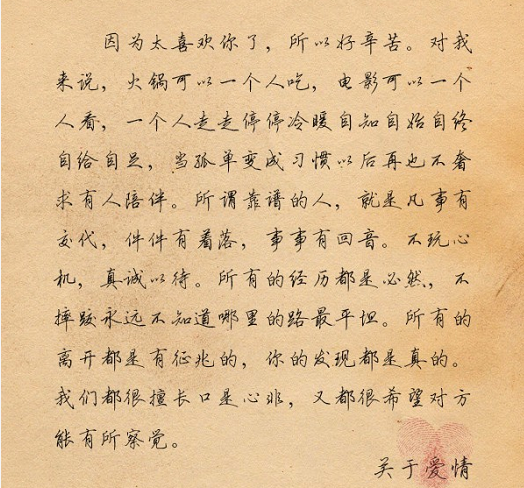 因为太喜欢你了，所以好辛苦。对我
来说，火锅可以一个人吃，电影可以一个
人看，一个人走走停停冷暖自知自始自终
自给自足，当孤单变成习惯以后再也不奢
求有人陪伴。所谓靠谱的人，就是凡事有
交代，件件有着落，事事有回音。不玩心
机，真诚以待。所有的经历都是必然，不
摔跤永远不知道哪里的路最平坦。所有的
离开都是有征兆的，你的发现都是真的。
我们都很擅长口是心非，又都很希望对方
能有所察觉。
关于爱情